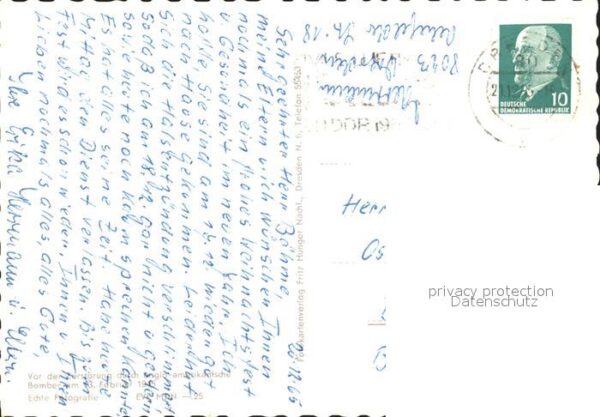 20.12.65
Sehr geehrter Herr Böhme,
meine Eltern u. ich wünschen Ihnen
nochmals ein frohes Weihnachtsfest
u. Gesundheit im neuen Jahr. Ich
hoffe, Sie sind am 17.12. wieder gut
nach Hause gekommen. Leider hat
sich die Halsentzündung verschlimmert,
sodaß ich am 18./12. gar nicht u. gestern
sowie heute noch kaum sprechen konnte.
Es hat alles seine Zeit. Habe heute
Mittag den Dienst verlassen. Bis zum
Fest wird es schon werden. Ihnen u. Ihren
Lieben nochmals alles, alles Gute,
Ihre Erika Hermann u. Eltern
Vor der Zerstörung durch anglo-amerikanische
Bomber am 13. Februar 1945
Echte Fotografie
Fotokartenverlag Fritz Hunger Nachf., Dresden N. 6, Telefon 55463
8023 Dresden
DDR 19
DEUTSCHE
DEMOKRATISCHE REPUBLIK
10
Herr
Os
privacy protection
Datenschutz